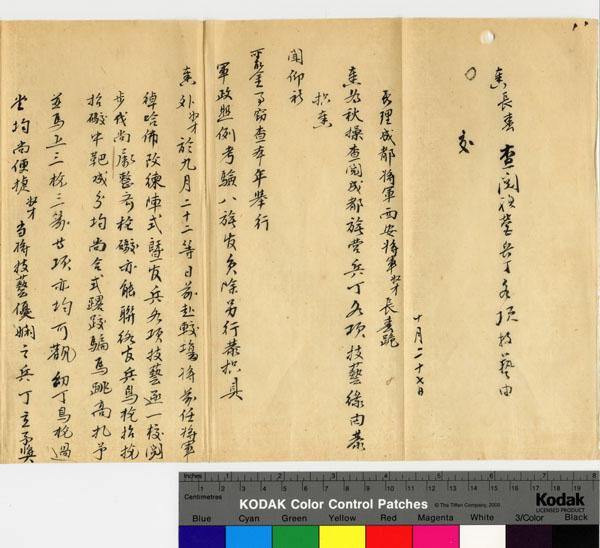 奏 長春 查閱旗營兵丁各項技藝由
交
十月二十七日
署理成都將軍西安將軍奴才長春跪
奏為秋操查閱成都旗營兵丁各項技藝繕摺恭
摺奏
聞仰祈
聖鑒事竊查本年舉行
軍政照例考驗八旗官員除另行恭摺具
奏外奴才於九月二十二等日前赴較場將前任將軍
綽哈佈改練陣式暨官兵各項技藝逐一校閱
步伐尚屬整齊槍礮亦能聯絡官兵鳥槍抬槍
抬礮中靶成分均尚合式躧跤騙馬跳高扎矛
並馬上三槍三箭廿項亦均可觀幼丁鳥槍過
堂均尚便捷奴才當將技藝優嫻之兵丁立予獎
Inches 1 2 3 4 5 6 7 8
Centimetres 1 2 3 4 5 6 7 8 9 10 11 12 13 14 15 16 17 18 19
KODAK Color Control Patches © The Tiffen Company, 2000 Kodak LICENSED PRODUCT
Blue Cyan Green Yellow Red Magenta White 3/Color Black